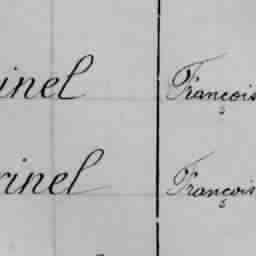 inel François
rinel François